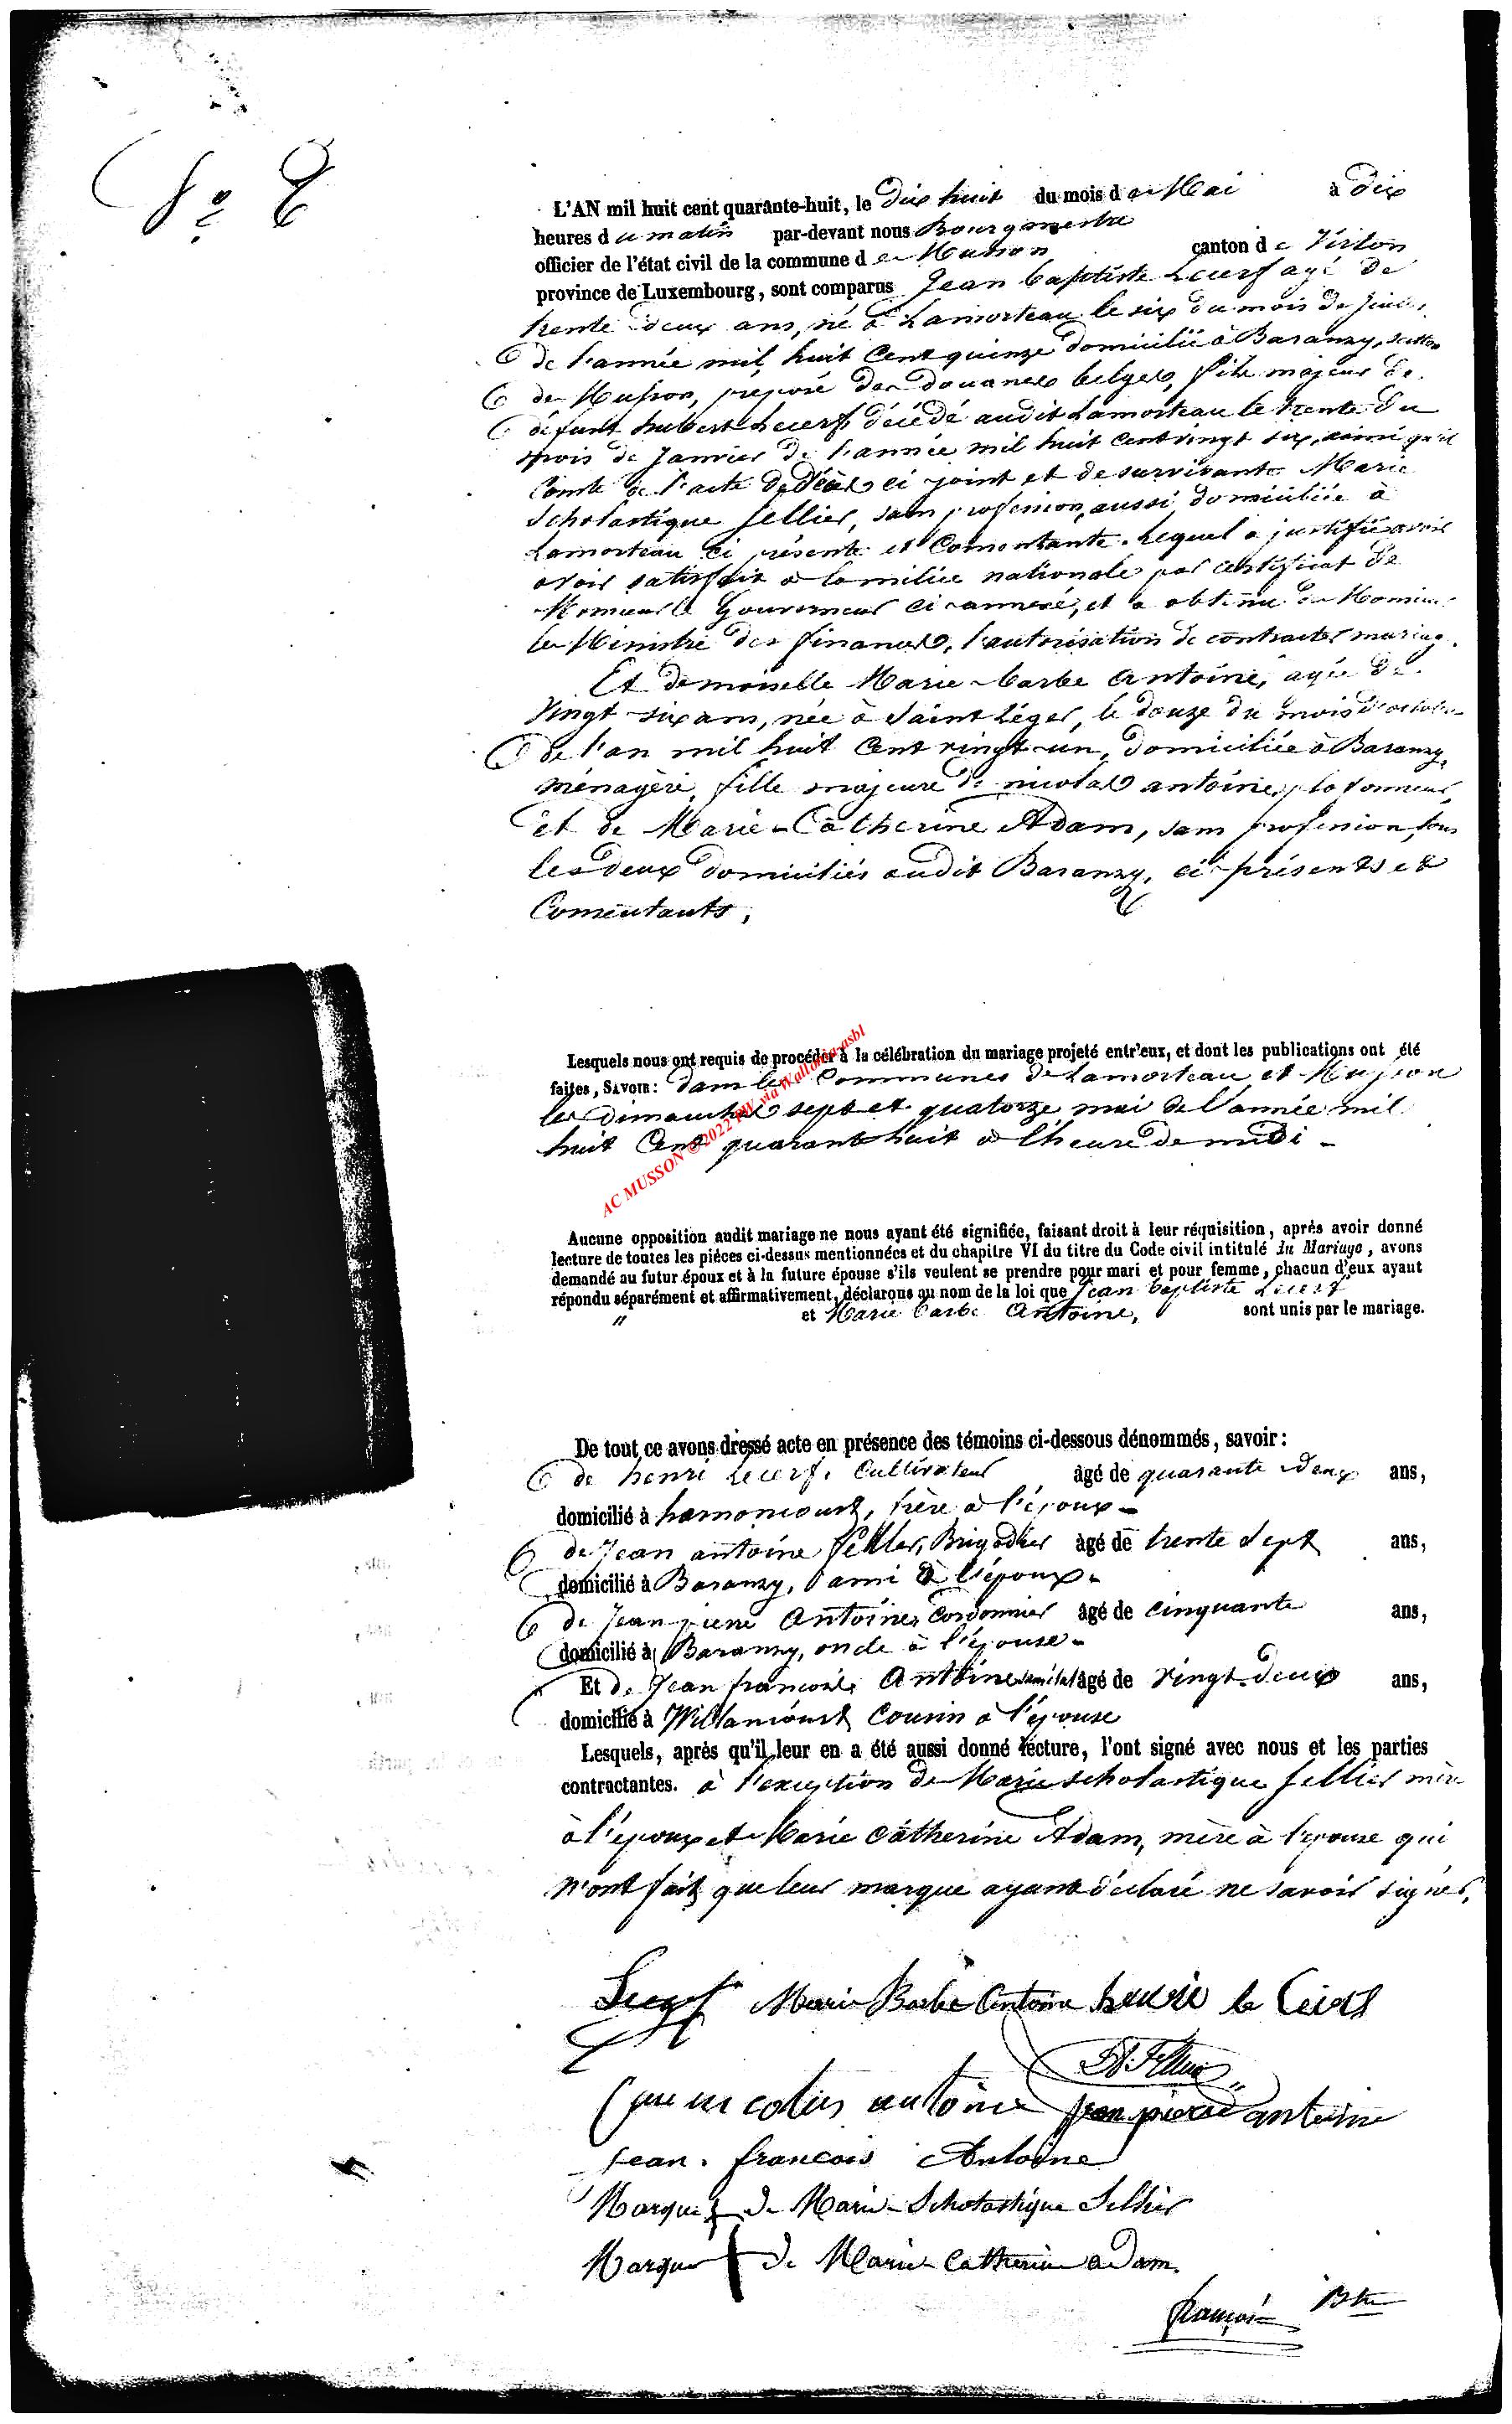 N° 8
L'AN mil huit cent quarante-huit, le dix huit du mois de Mai à dix
heures du matin par-devant nous Bourgmestre
officier de l'état civil de la commune de Musson canton de Virton
province de Luxembourg, sont comparus Jean baptiste Lecerf agé de
trente deux ans, né à Lamorteau le six du mois de
de l'année mil huit Cent quinze domicilié à Baranzy, section
de Musson, préposé des douanes belges, fils majeur de
défunt hubert Lecerf décédé audit Lamorteau le trente du
mois de Janvier de l'année mil huit Cent vingt six, ainsi qu'il
Conste de l'acte de décès ci joint et de survivante Marie
Scholastique Sellier, sans profession, aussi domiciliée à
Lamorteau ci présente et Consentante. Lequel a justifié avoir
avoir satisfait à la milice nationale par certificat de
Monsieur le Gouverneur ci annexé, et a obtenu de Monsieur
le Ministre des finances, l'autorisation de contracter mariage.
Et demoiselle Marie-barbe Antoine, agée de
vingt six ans, née à Saint Léger, le douze du mois d'octobre
de l'an mil huit Cent vingt-un, domiciliée à Baranzy,
ménagère, fille majeure de nicolas antoine, plafonneur,
et de Marie-Catherine Adam, sans profession, tous
les deux domiciliés audit Baranzy, ci présents et
Consentants,
Lesquels nous ont requis de procéder à la célébration du mariage projeté entr'eux, et dont les publications ont été
faites, SAVOIR: dans les Communes de Lamorteau et Musson
les dimanches sept et quatorze mai de l'année mil
huit Cent quarante huit à l'heure de midi -
AC MUSSON © 2022 RW via Wallonia asbl
Aucune opposition audit mariage ne nous ayant été signifiée, faisant droit à leur réquisition, après avoir donné
lecture de toutes les pièces ci-dessus mentionnées et du chapitre VI du titre du Code civil intitulé du Mariage, avons
demandé au futur époux et à la future épouse s'ils veulent se prendre pour mari et pour femme, chacun d'eux ayant
répondu séparément et affirmativement, déclarons au nom de la loi que Jean baptiste Lecerf
" et Marie barbe Antoine, sont unis par le mariage.
De tout ce avons dressé acte en présence des témoins ci-dessous dénommés, savoir:
de henri Lecerf, Cultivateur âgé de quarante deux ans,
domicilié à harnoncourt, frère à l'époux -
de Jean antoine Feller, Brigadier âgé de trente sept ans,
domicilié à Baranzy, ami à l'époux -
de Jean pierre Antoine, Cordonnier âgé de cinquante ans,
domicilié à Baranzy, oncle à l'épouse -
Et de Jean francois Antoine âgé de vingt-deux ans,
domicilié à Willancourt Cousin à l'épouse
Lesquels, après qu'il leur en a été aussi donné lecture, l'ont signé avec nous et les parties
contractantes. à l'exception de Marie Scholastique Sellier mère
à l'époux et Marie Catherine Adam, mère à l'épouse qui
n'ont fait que leur marque ayant déclaré ne savoir signer.
Lecerf Marie Barbe Antoine henri le Cerf
JA Feller
nicolas antoine jean pierre antoine
jean. francois Antoine
Marque de Marie Scholastique Sellier
Marque de Marie Catherine adam.